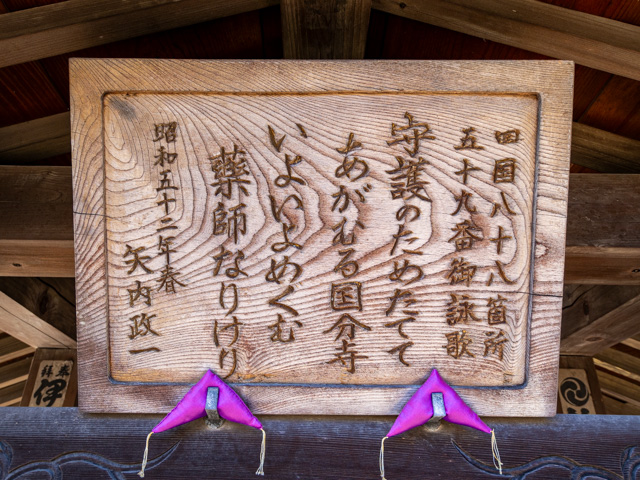 四国八十八箇所
五十九番御詠歌
守護のためたてて
あがむる国分寺
いよいよめぐむ
薬師なりけり
昭和五十二年春
矢内政一
奉拝
伊